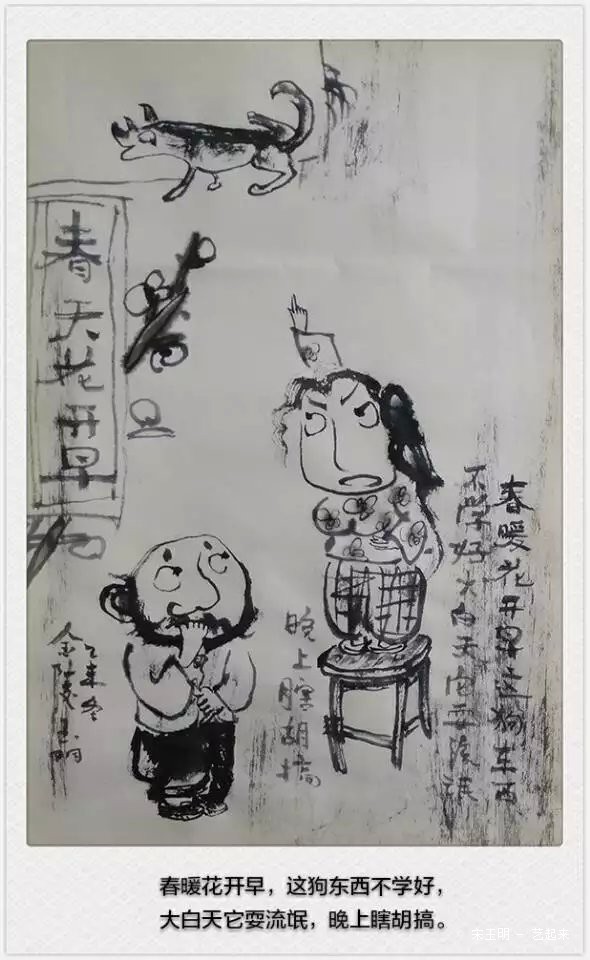 春天花开早
春暖花开早这狗东西
不学好大白天它耍流氓
晚上瞎胡搞
乙未冬
金陵
春暖花开早，这狗东西不学好，
大白天它耍流氓，晚上瞎胡搞。